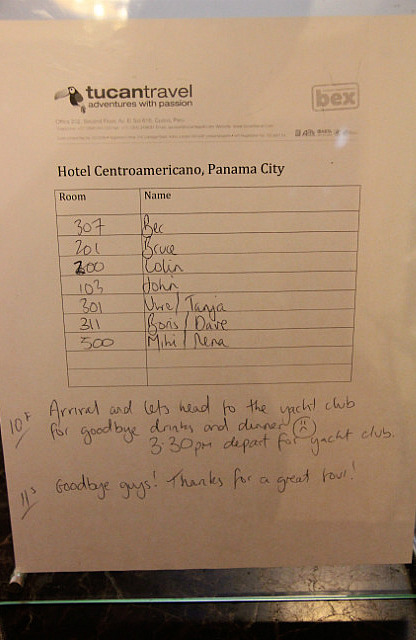 tucantravel
adventures with passion
bex
Hotel Centroamericano, Panama City
Room Name
307 Bec
201 Bruce
200 Colin
103 John
301 Uwe / Tanja
311 Boris / Dave
500 Mihi / Rena
10th Arrival and lets head to the yacht club
for goodbye drinks and dinner
3.30pm depart for yacht club.
11s Goodbye guys! Thanks for a great tour!